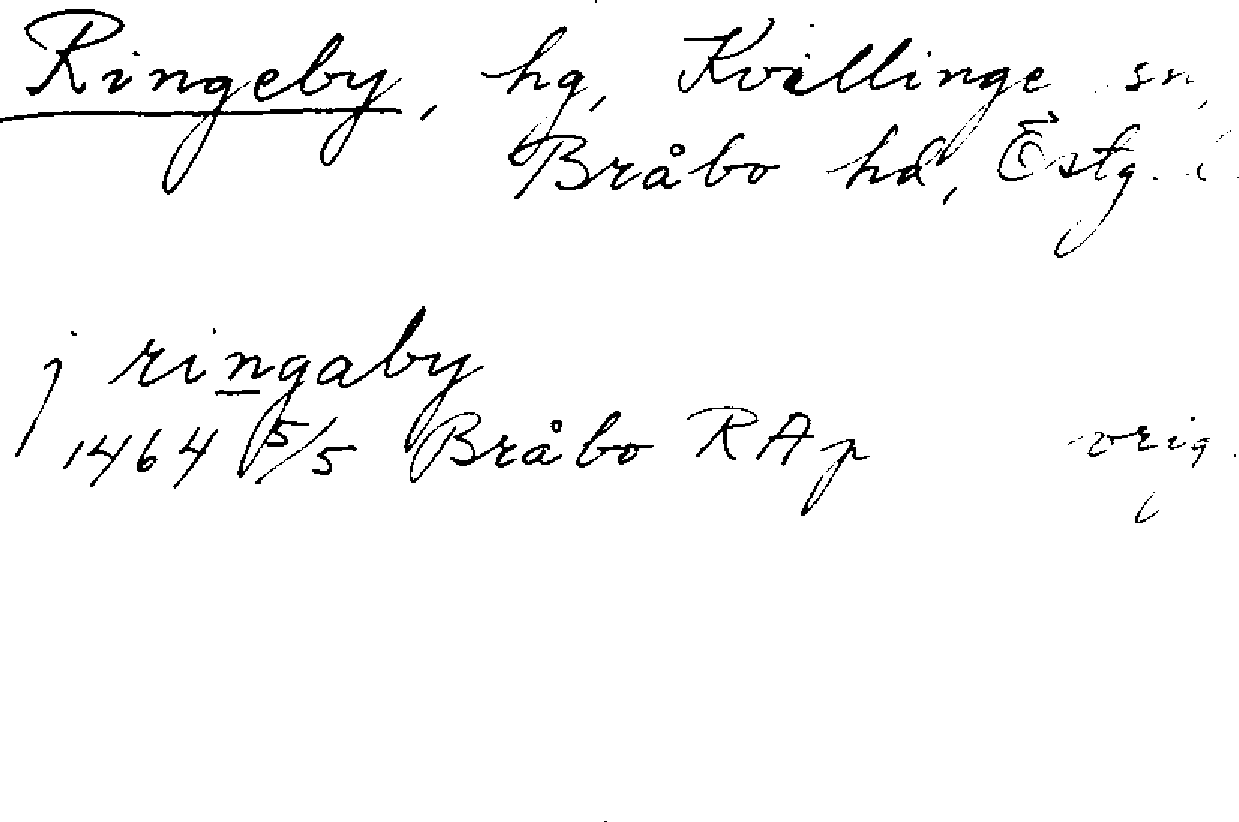 Ringeby, hg, Kvillinge sn,
Bråbo hd, Östg. l.
j ringaby
1464 5/5 Bråbo RAp orig.